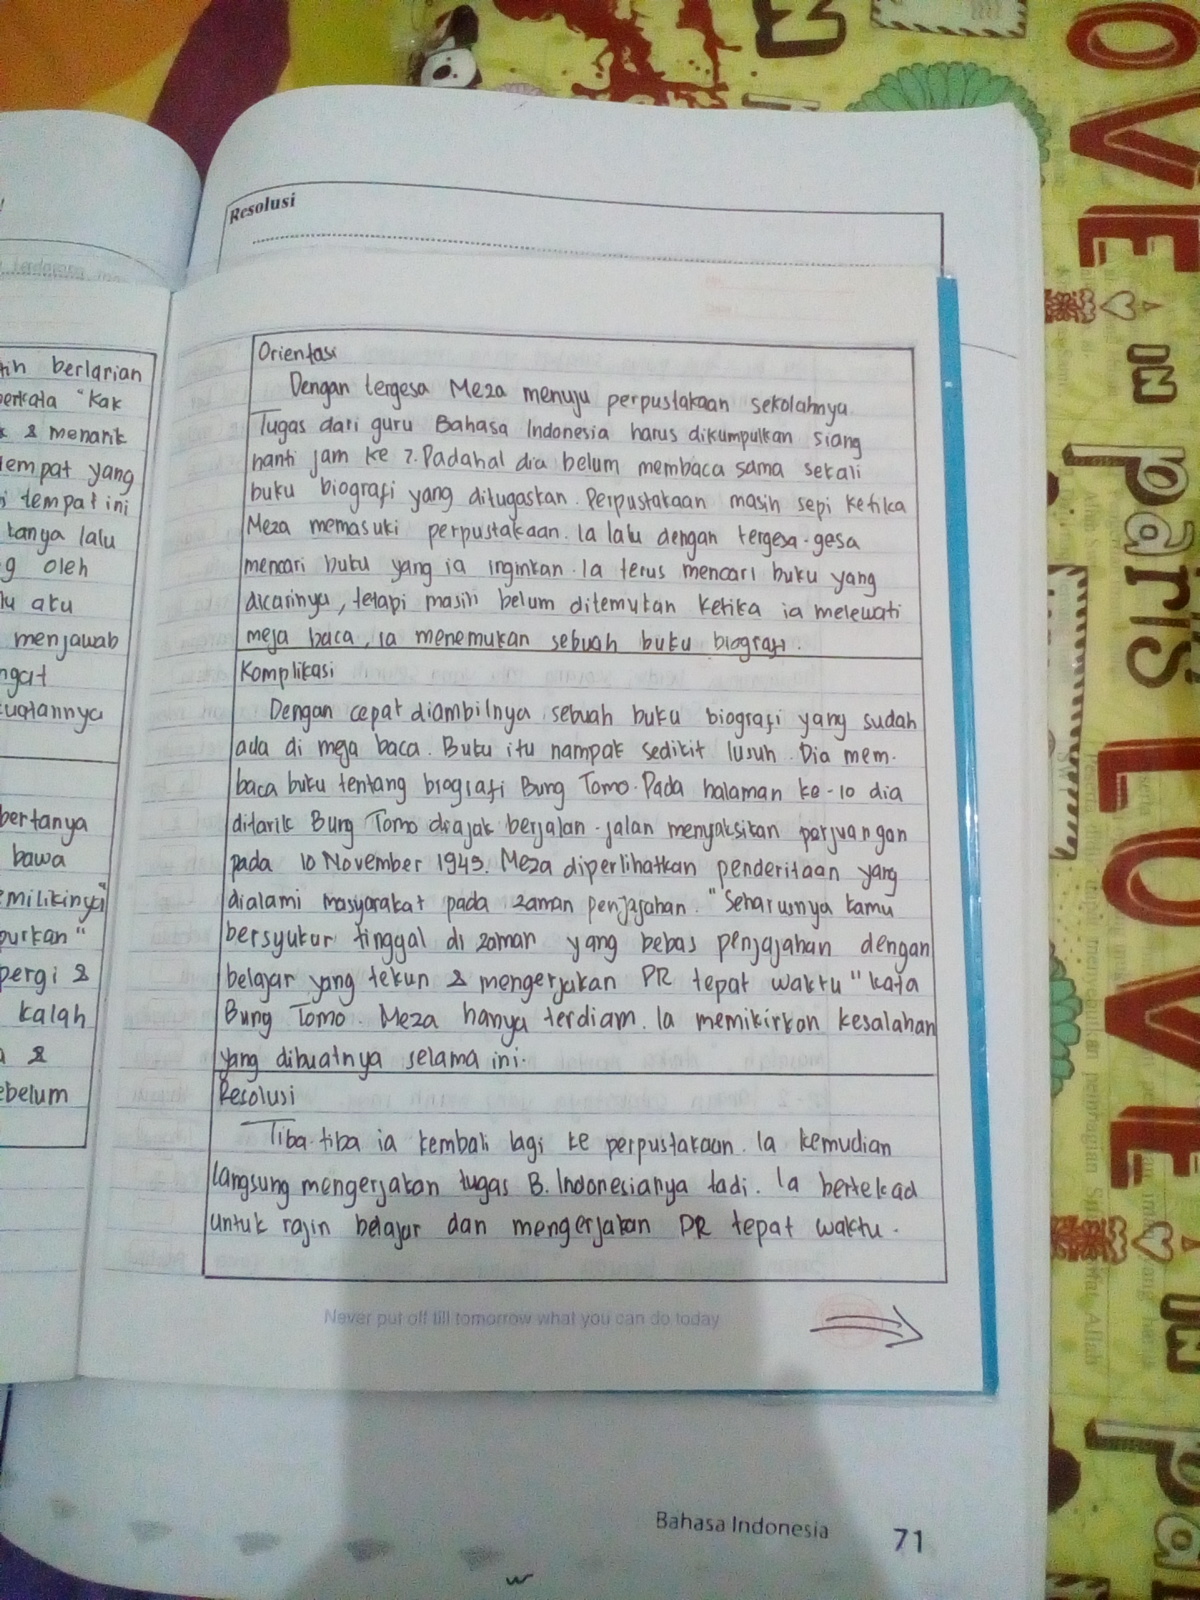 Resolusi
tih berlarian
berkata "Kak
& menarik
tempat yang
tempat ini
tanya lalu
g oleh
lu aku
menjawab
ngat
bertanya
bawa
emilikinya"
purkan"
pergi &
kalah
a &
ebelum
Orientasi
Dengan tergesa Meza menuju perpustakaan sekolahnya
Tugas dari guru Bahasa Indonesia harus dikumpulkan siang
nanti jam ke 7. Padahal dia belum membaca sama sekali
buku biografi yang ditugaskan. Perpustakaan masih sepi ketika
Meza memasuki perpustakaan. Ia lalu dengan tergesa-gesa
mencari buku yang ia inginkan. Ia terus mencari buku yang
dicarinya, tetapi masih belum ditemukan ketika ia melewati
meja baca, ia menemukan sebuah buku biografi.
Komplikasi
Dengan cepat diambilnya sebuah buku biografi yang sudah
ada di meja baca. Buku itu nampak sedikit lusuh. Dia mem-
baca buku tentang biografi Bung Tomo. Pada halaman ke-10 dia
ditarik Bung Tomo diajak berjalan-jalan menyaksikan perjuangan
pada 10 November 1945. Meza diperlihatkan penderitaan yang
dialami masyarakat pada zaman penjajahan. "Seharusnya kamu
bersyukur tinggal di zaman yang bebas penjajahan dengan
belajar yang tekun & mengerjakan PR tepat waktu" kata
Bung Tomo. Meza hanya terdiam. Ia memikirkan kesalahan
yang dibuatnya selama ini.
Resolusi
Tiba-tiba ia kembali lagi ke perpustakaan. Ia kemudian
langsung mengerjakan tugas B. Indonesianya tadi. Ia bertekad
untuk rajin belajar dan mengerjakan PR tepat waktu.
Never put off till tomorrow what you can do today
Bahasa Indonesia 71
LOVE IN paris LOVE IN